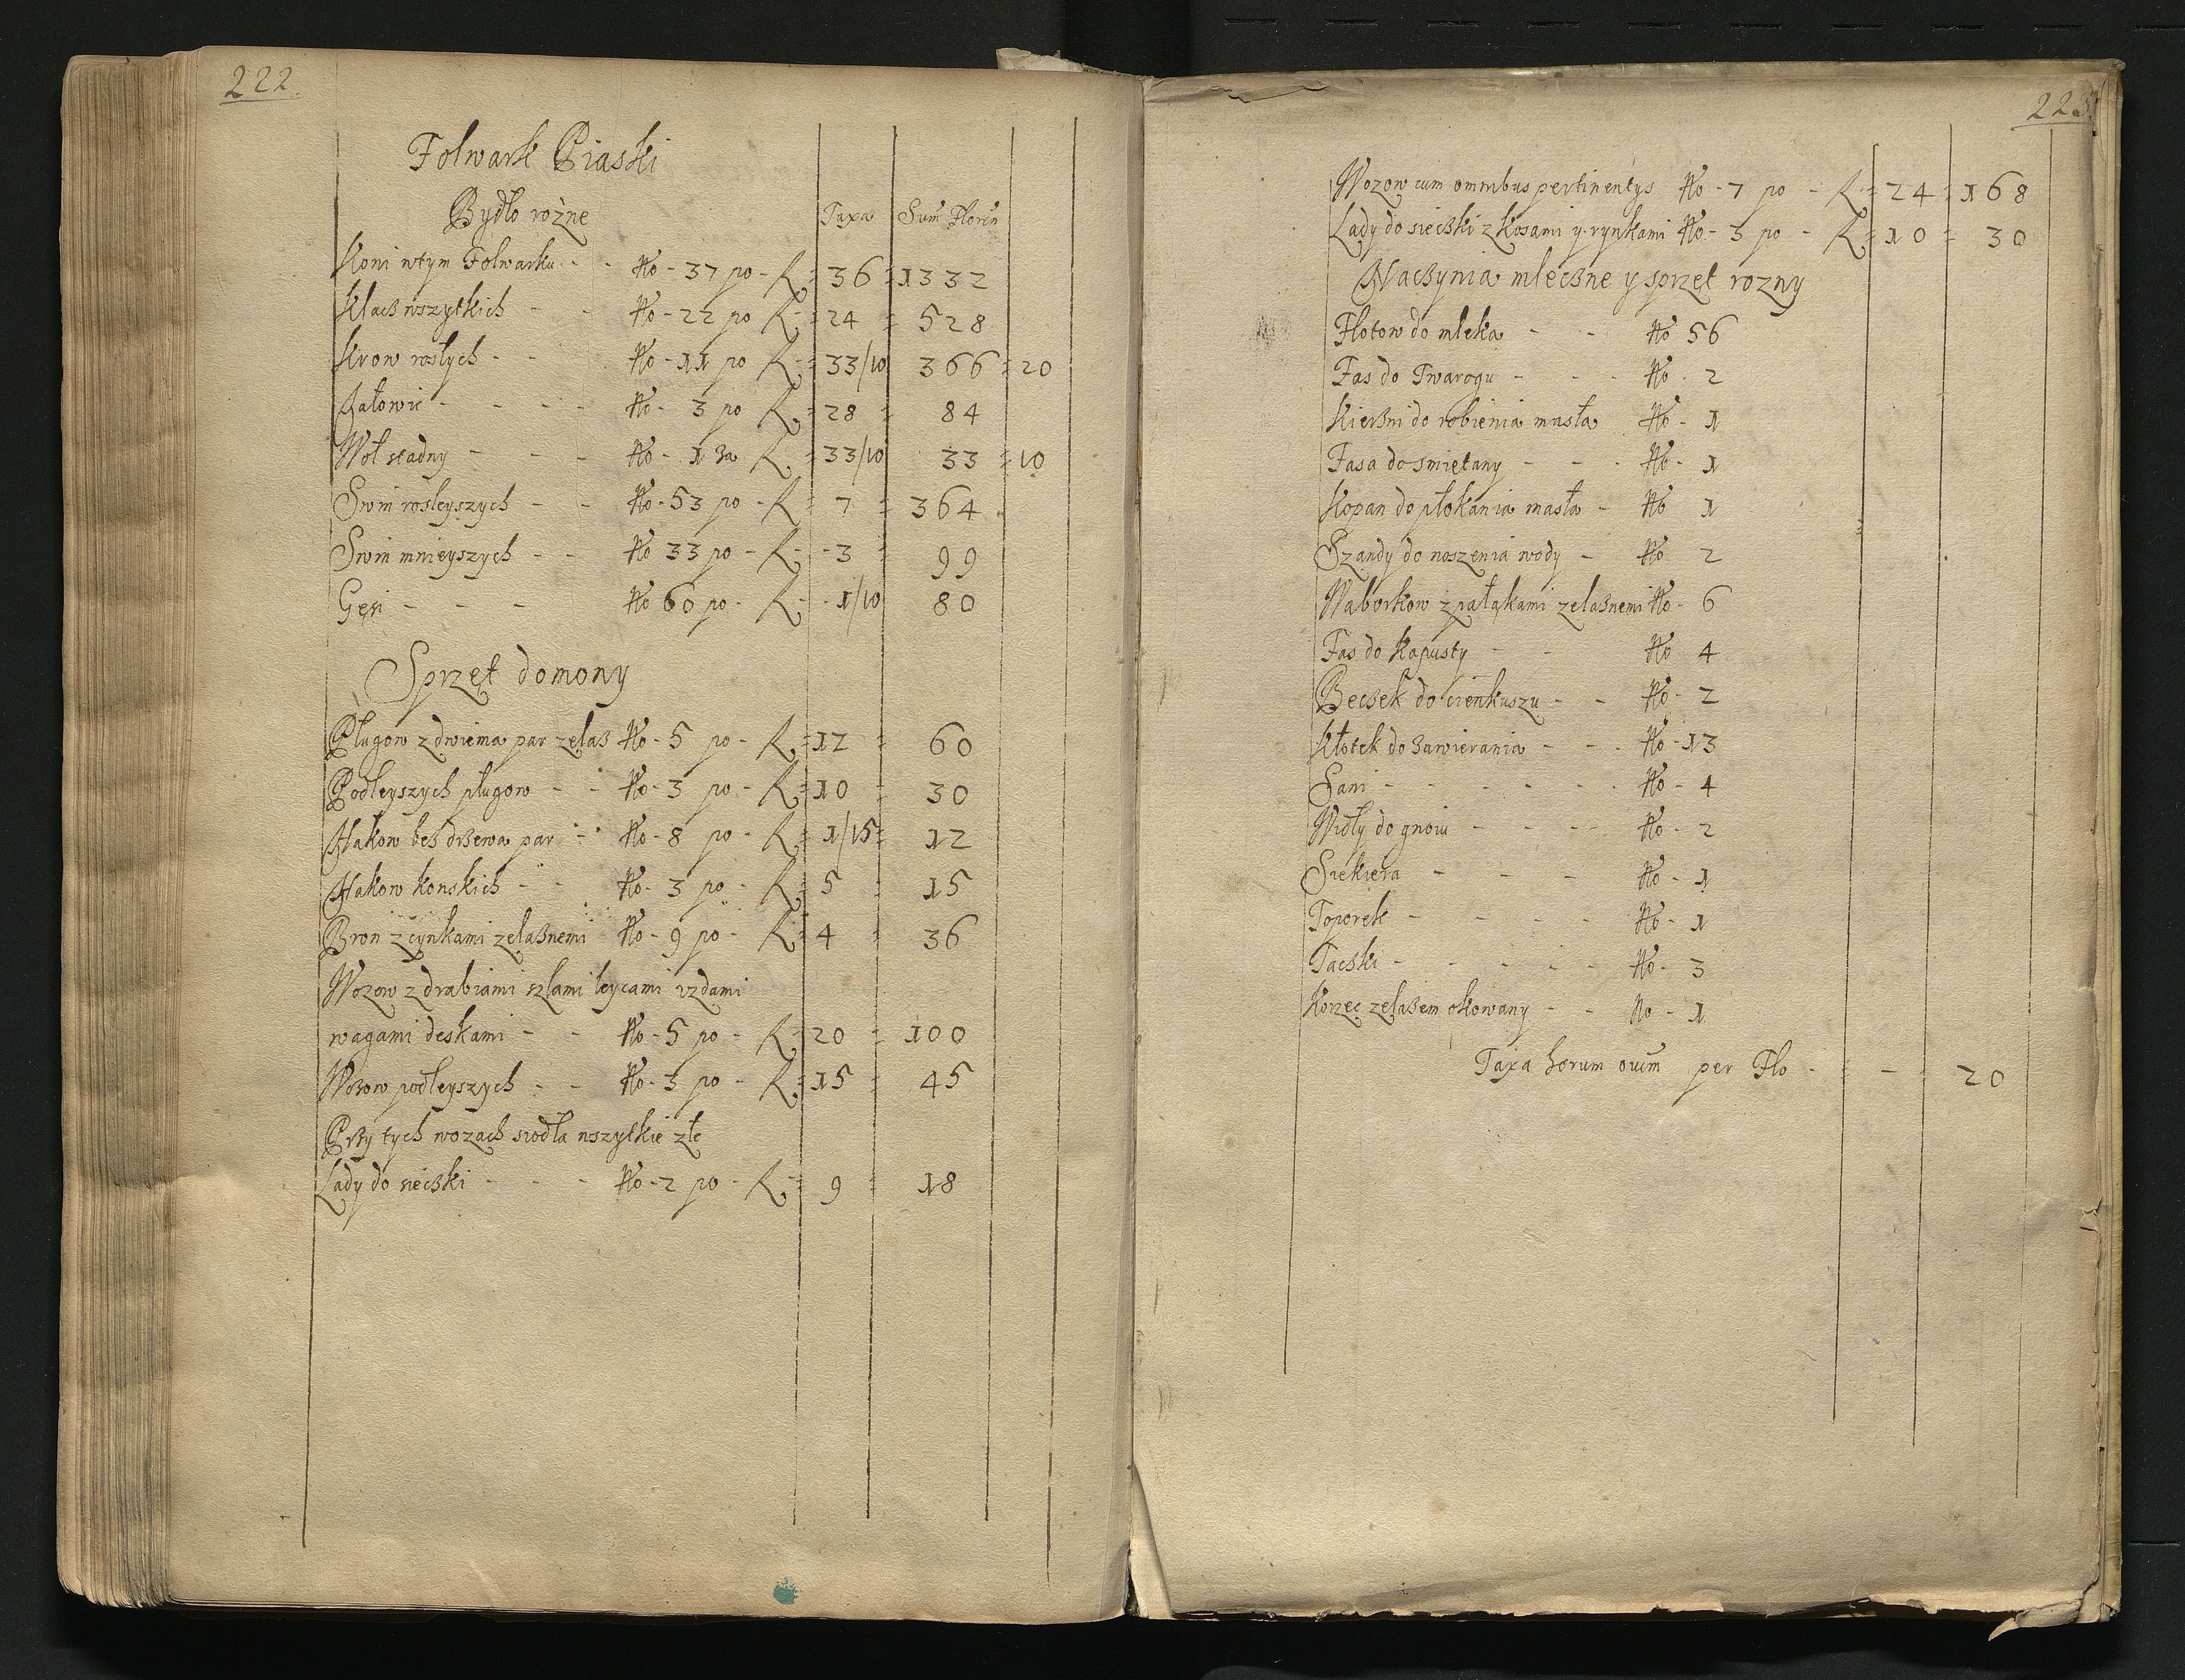 222.
Folwark Piaski
Bydło rożne Taxa Sum̃ Floreñ
Koni wtym Folwarku - - No - 37 po - fl = 36 = 1332
Klacz wszytkich - - No - 22 po fl = 24 = 528
Krow rosłych - - No - 11 po fl = 33/10 366 = 20
Jałowic - - - - No - 3 po fl = 28 = 84
Woł stadny - - - No - 1 za fl = 33/10 33 = 10
Swini rosleyszych - - No - 53 po - fl = 7 = 364
Swini mnieyszych - - No 33 po - fl - 3 = 99
Gęsi - - - No 60 po - fl - 1/10 80
Sprzęt domowy
Pługow z dwiema par zelaz No - 5 po - fl = 12 = 60
Podleyszych pługow - - No - 3 po - fl = 10 = 30
Hakow bez drzewa par - - No - 8 po - fl = 1/15 = 12
Hakow konskich - - No - 3 po - fl = 5 = 15
Bron z cynkami zelaznemi No - 9 po - fl = 4 = 36
Wozow z drabiami szlami leycami uzdami
wagami deskami - - No - 5 po - fl = 20 = 100
Wozow podleyszych - - No - 3 po - fl = 15 = 45
Przy tych wozach siodła wszytkie złe
Lady do sieczki - - - No - 2 po - fl = 9 = 18
223.
Wozow cum omnibus pertinentys No - 7 po - fl = 24 = 168
Lady do sieczki z kosami y rynkami No - 3 po - fl = 10 = 30
Naczynia mleczne y sprzęt rozny
Flotow do mleka - - No 56
Fas do Twarogu - - - No - 2
Kierzni do robienia masła No - 1
Fasa do smiętany - - - No - 1
Kopan do płokania masła - No 1
Szandy do noszenia wody - No 2
Waborkow z pałąkami zelaznemi No - 6
Fas do kapusty - - No 4
Beczek do cienkuszu - - No - 2
Kłotek do zawierania - - - No - 13
Sani - - - - - - No - 4
Widły do gnoiu - - - - No - 2
Siekiera - - - No - 1
Toporek - - - - No - 1
Taczki - - - - - No - 3
Korzec zelazem okowany - - No - 1
Taxa horum oviũm per Flo - - - 20